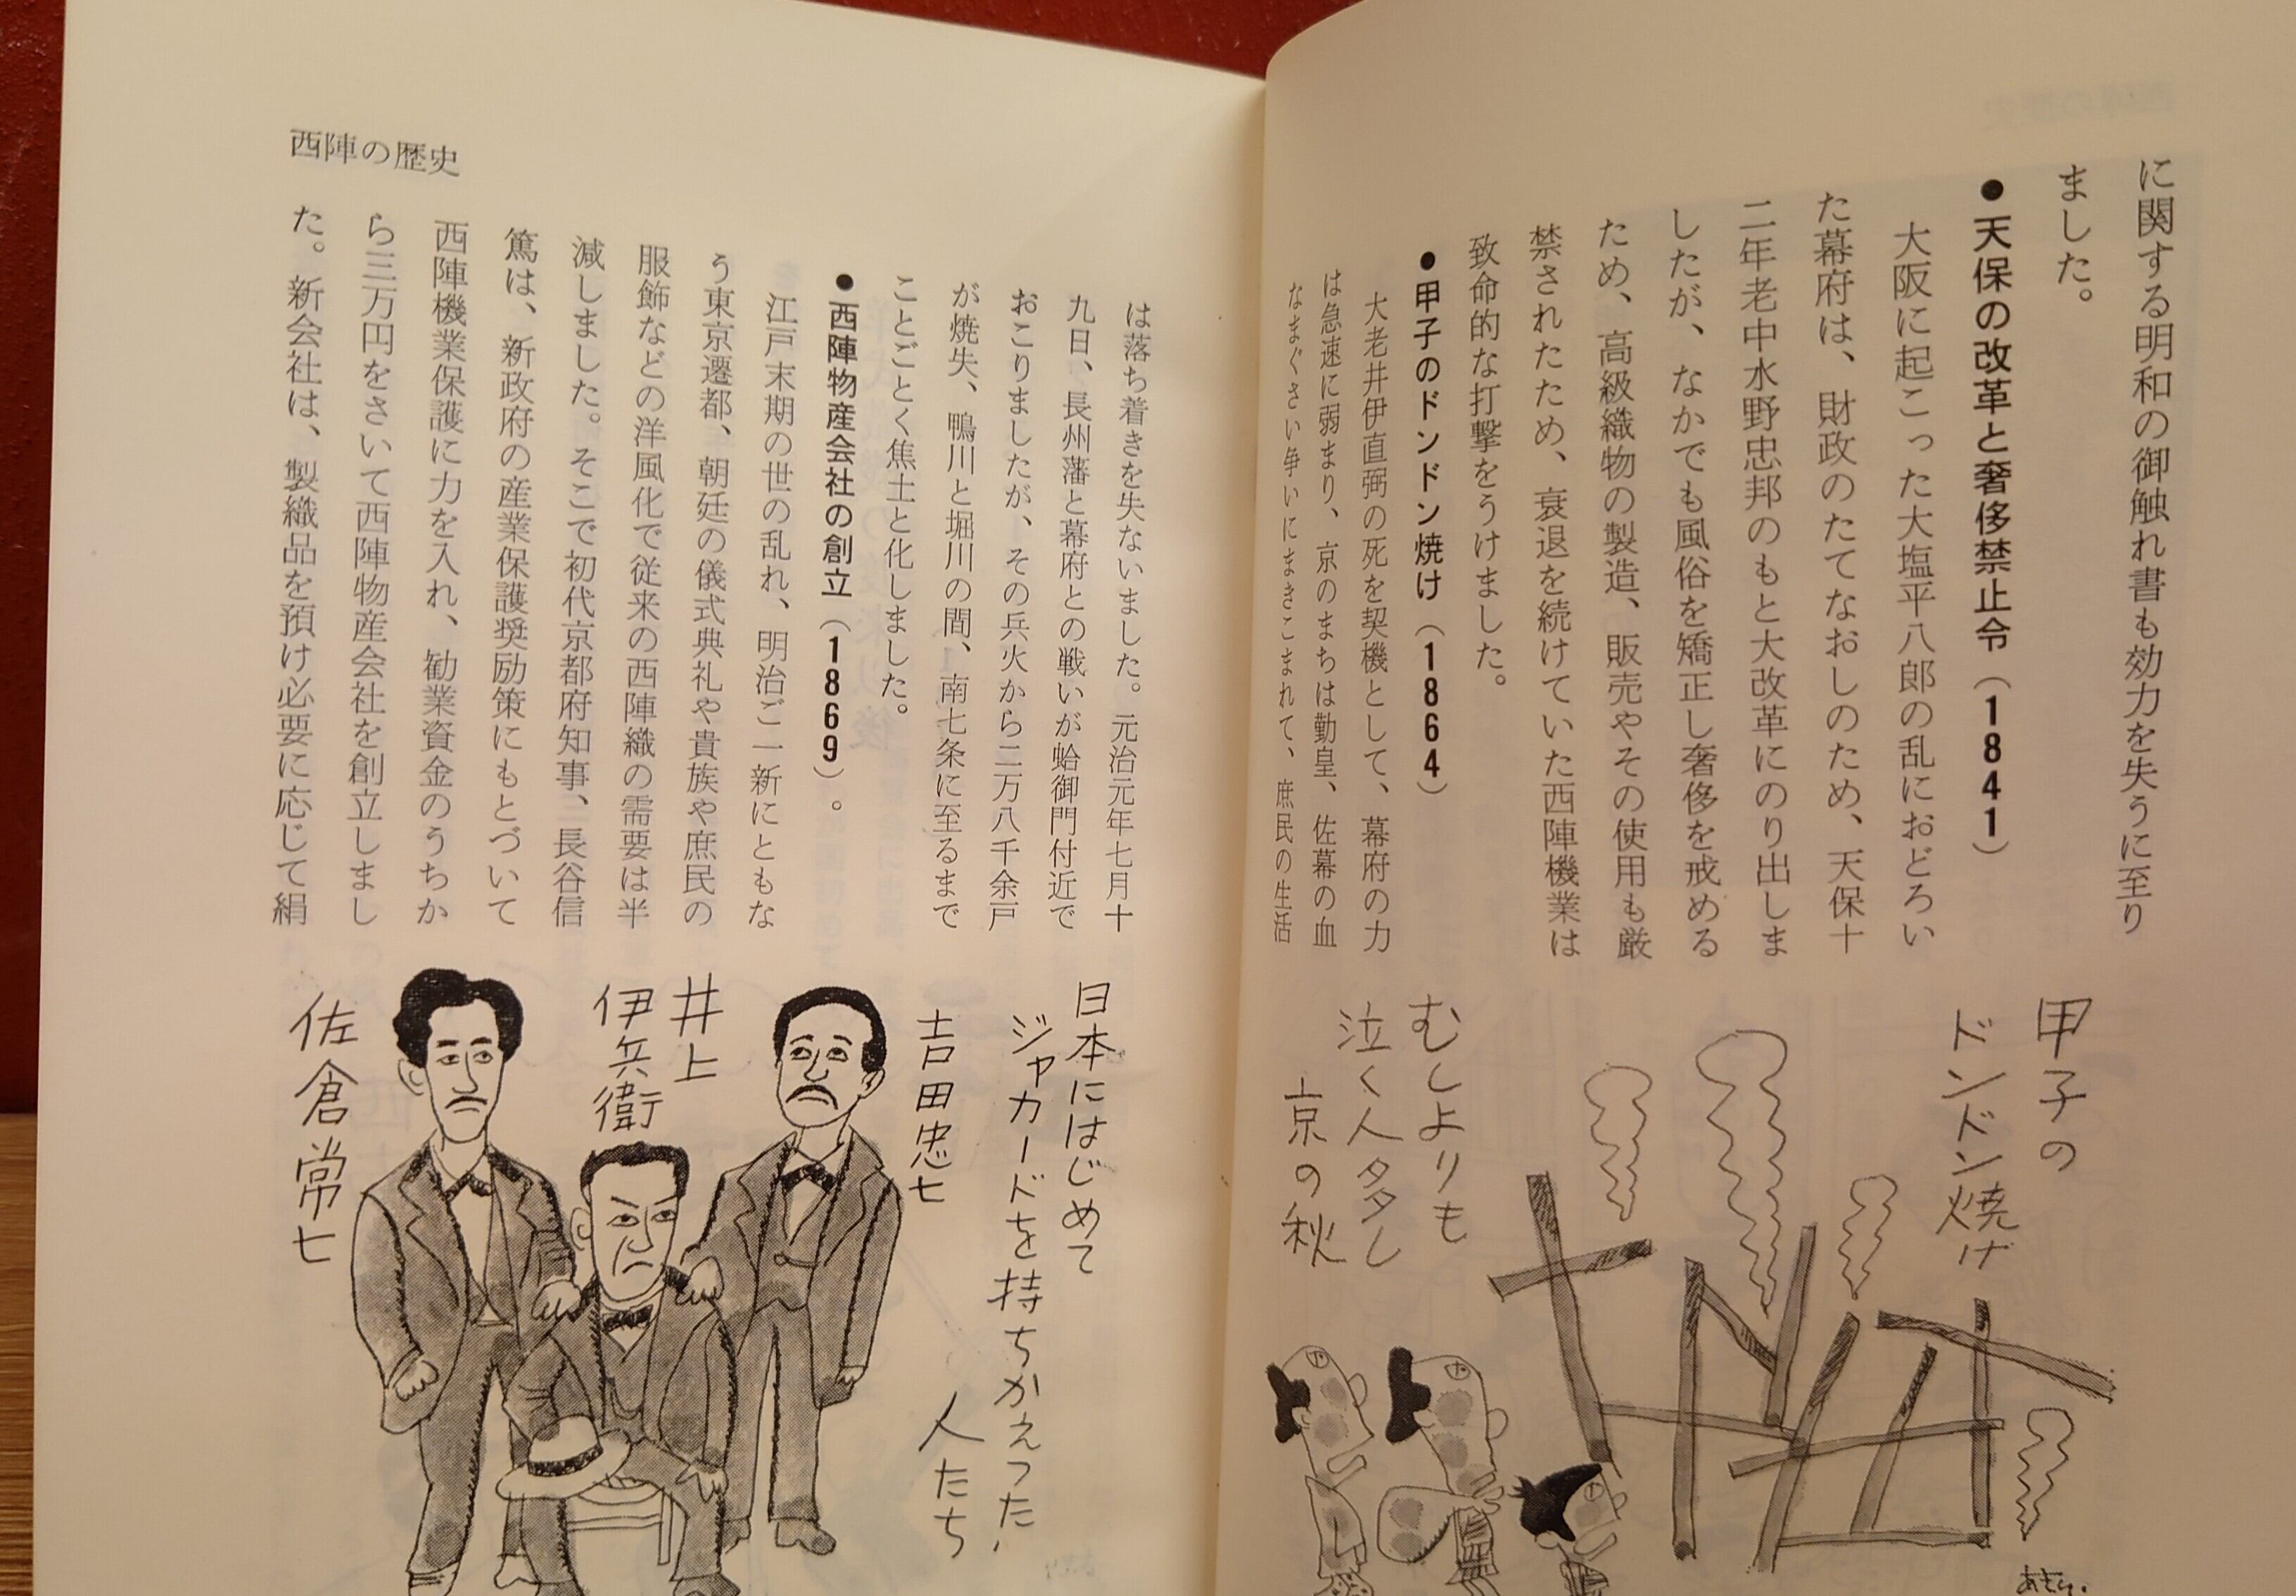 に関する明和の御触れ書も効力を失うに至り
ました。
●天保の改革と奢侈禁止令(1841)
大阪に起こった大塩平八郎の乱におどろい
た幕府は、財政のたてなおしのため、天保十
二年老中水野忠邦のもと大改革にのり出しま
したが、なかでも風俗を矯正し奢侈を戒める
ため、高級織物の製造、販売やその使用も厳
禁されたため、衰退を続けていた西陣機業は
致命的な打撃をうけました。
●甲子のドンドン焼け(1864)
大老井伊直弼の死を契機として、幕府の力
は急速に弱まり、京のまちは勤皇、佐幕の血
なまぐさい争いにまきこまれて、庶民の生活
甲子の
ドンドン焼け
むしよりも
泣く人多し
京の秋
西陣の歴史
は落ち着きを失ないました。元治元年七月十
九日、長州藩と幕府との戦いが蛤御門付近で
おこりましたが、その兵火から二万八千余戸
が焼失、鴨川と堀川の間、南七条に至るまで
ことごとく焦土と化しました。
●西陣物産会社の創立(1869)。
江戸末期の世の乱れ、明治ご一新にともな
う東京遷都、朝廷の儀式典礼や貴族や庶民の
服飾などの洋風化で従来の西陣織の需要は半
減しました。そこで初代京都府知事、長谷信
篤は、新政府の産業保護奨励策にもとづいて
西陣機業保護に力を入れ、勧業資金のうちか
ら三万円をさいて西陣物産会社を創立しまし
た。新会社は、製織品を預け必要に応じて絹
日本にはじめて
ジャカードを持ちかえった
人たち
吉田忠七
井上
伊兵衛
佐倉常七